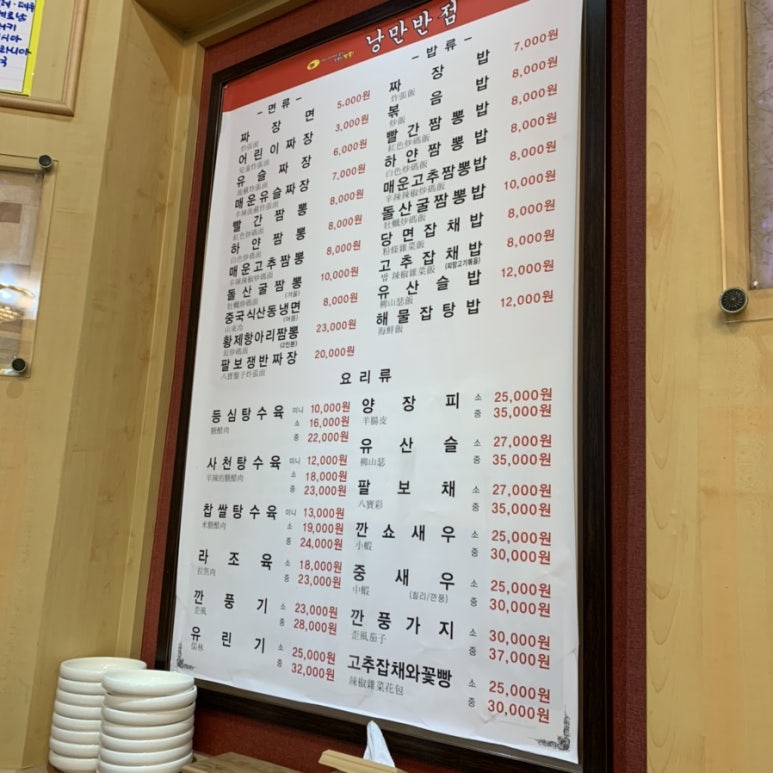 낭만반점
- 면류 -
짜장면 5,000원
炸張面
어린이짜장 3,000원
兒童炸張面
유슬짜장 6,000원
매운유슬짜장 7,000원
빨간짬뽕 8,000원
紅色炒碼面
하얀짬뽕 8,000원
白色炒碼面
매운고추짬뽕 8,000원
辛辣辣椒炒碼面
돌산굴짬뽕 (겨울) 10,000원
牡蠣炒碼面
중국식산동냉면 (여름) 8,000원
山東冷
황제항아리짬뽕 (2인분) 23,000원
팔보쟁반짜장 20,000원
八寶盤子炸張面
- 밥류 -
짜장밥 7,000원
炸張飯
볶음밥 8,000원
炒飯
빨간짬뽕밥 8,000원
紅色炒碼飯
하얀짬뽕밥 8,000원
白色炒碼飯
매운고추짬뽕밥 8,000원
辛辣辣椒炒碼飯
돌산굴짬뽕밥 10,000원
牡蠣炒碼飯
당면잡채밥 8,000원
粉條雜菜飯
고추잡채밥 8,000원
辣椒雜菜飯
유산슬밥 12,000원
柳山瑟飯
해물잡탕밥 12,000원
海鮮飯
요리류
등심탕수육 미니 10,000원
糖醋肉 소 16,000원
중 22,000원
사천탕수육 미니 12,000원
辛辣的糖醋肉 소 18,000원
중 23,000원
찹쌀탕수육 미니 13,000원
米糖醋肉 소 19,000원
중 24,000원
라조육 소 18,000원
拉煮肉 중 23,000원
깐풍기 소 23,000원
歪風 중 28,000원
유린기 소 25,000원
儒林 중 32,000원
양장피 소 25,000원
羊腸皮 중 35,000원
유산슬 소 27,000원
柳山瑟 중 35,000원
팔보채 소 27,000원
八寶彩 중 35,000원
깐쇼새우 소 25,000원
小蝦 중 30,000원
중새우 소 25,000원
中蝦 (칠리/깐풍) 중 30,000원
깐풍가지 소 30,000원
歪風茄子 중 37,000원
고추잡채와꽃빵 소 25,000원
辣椒雜菜花包 중 30,000원